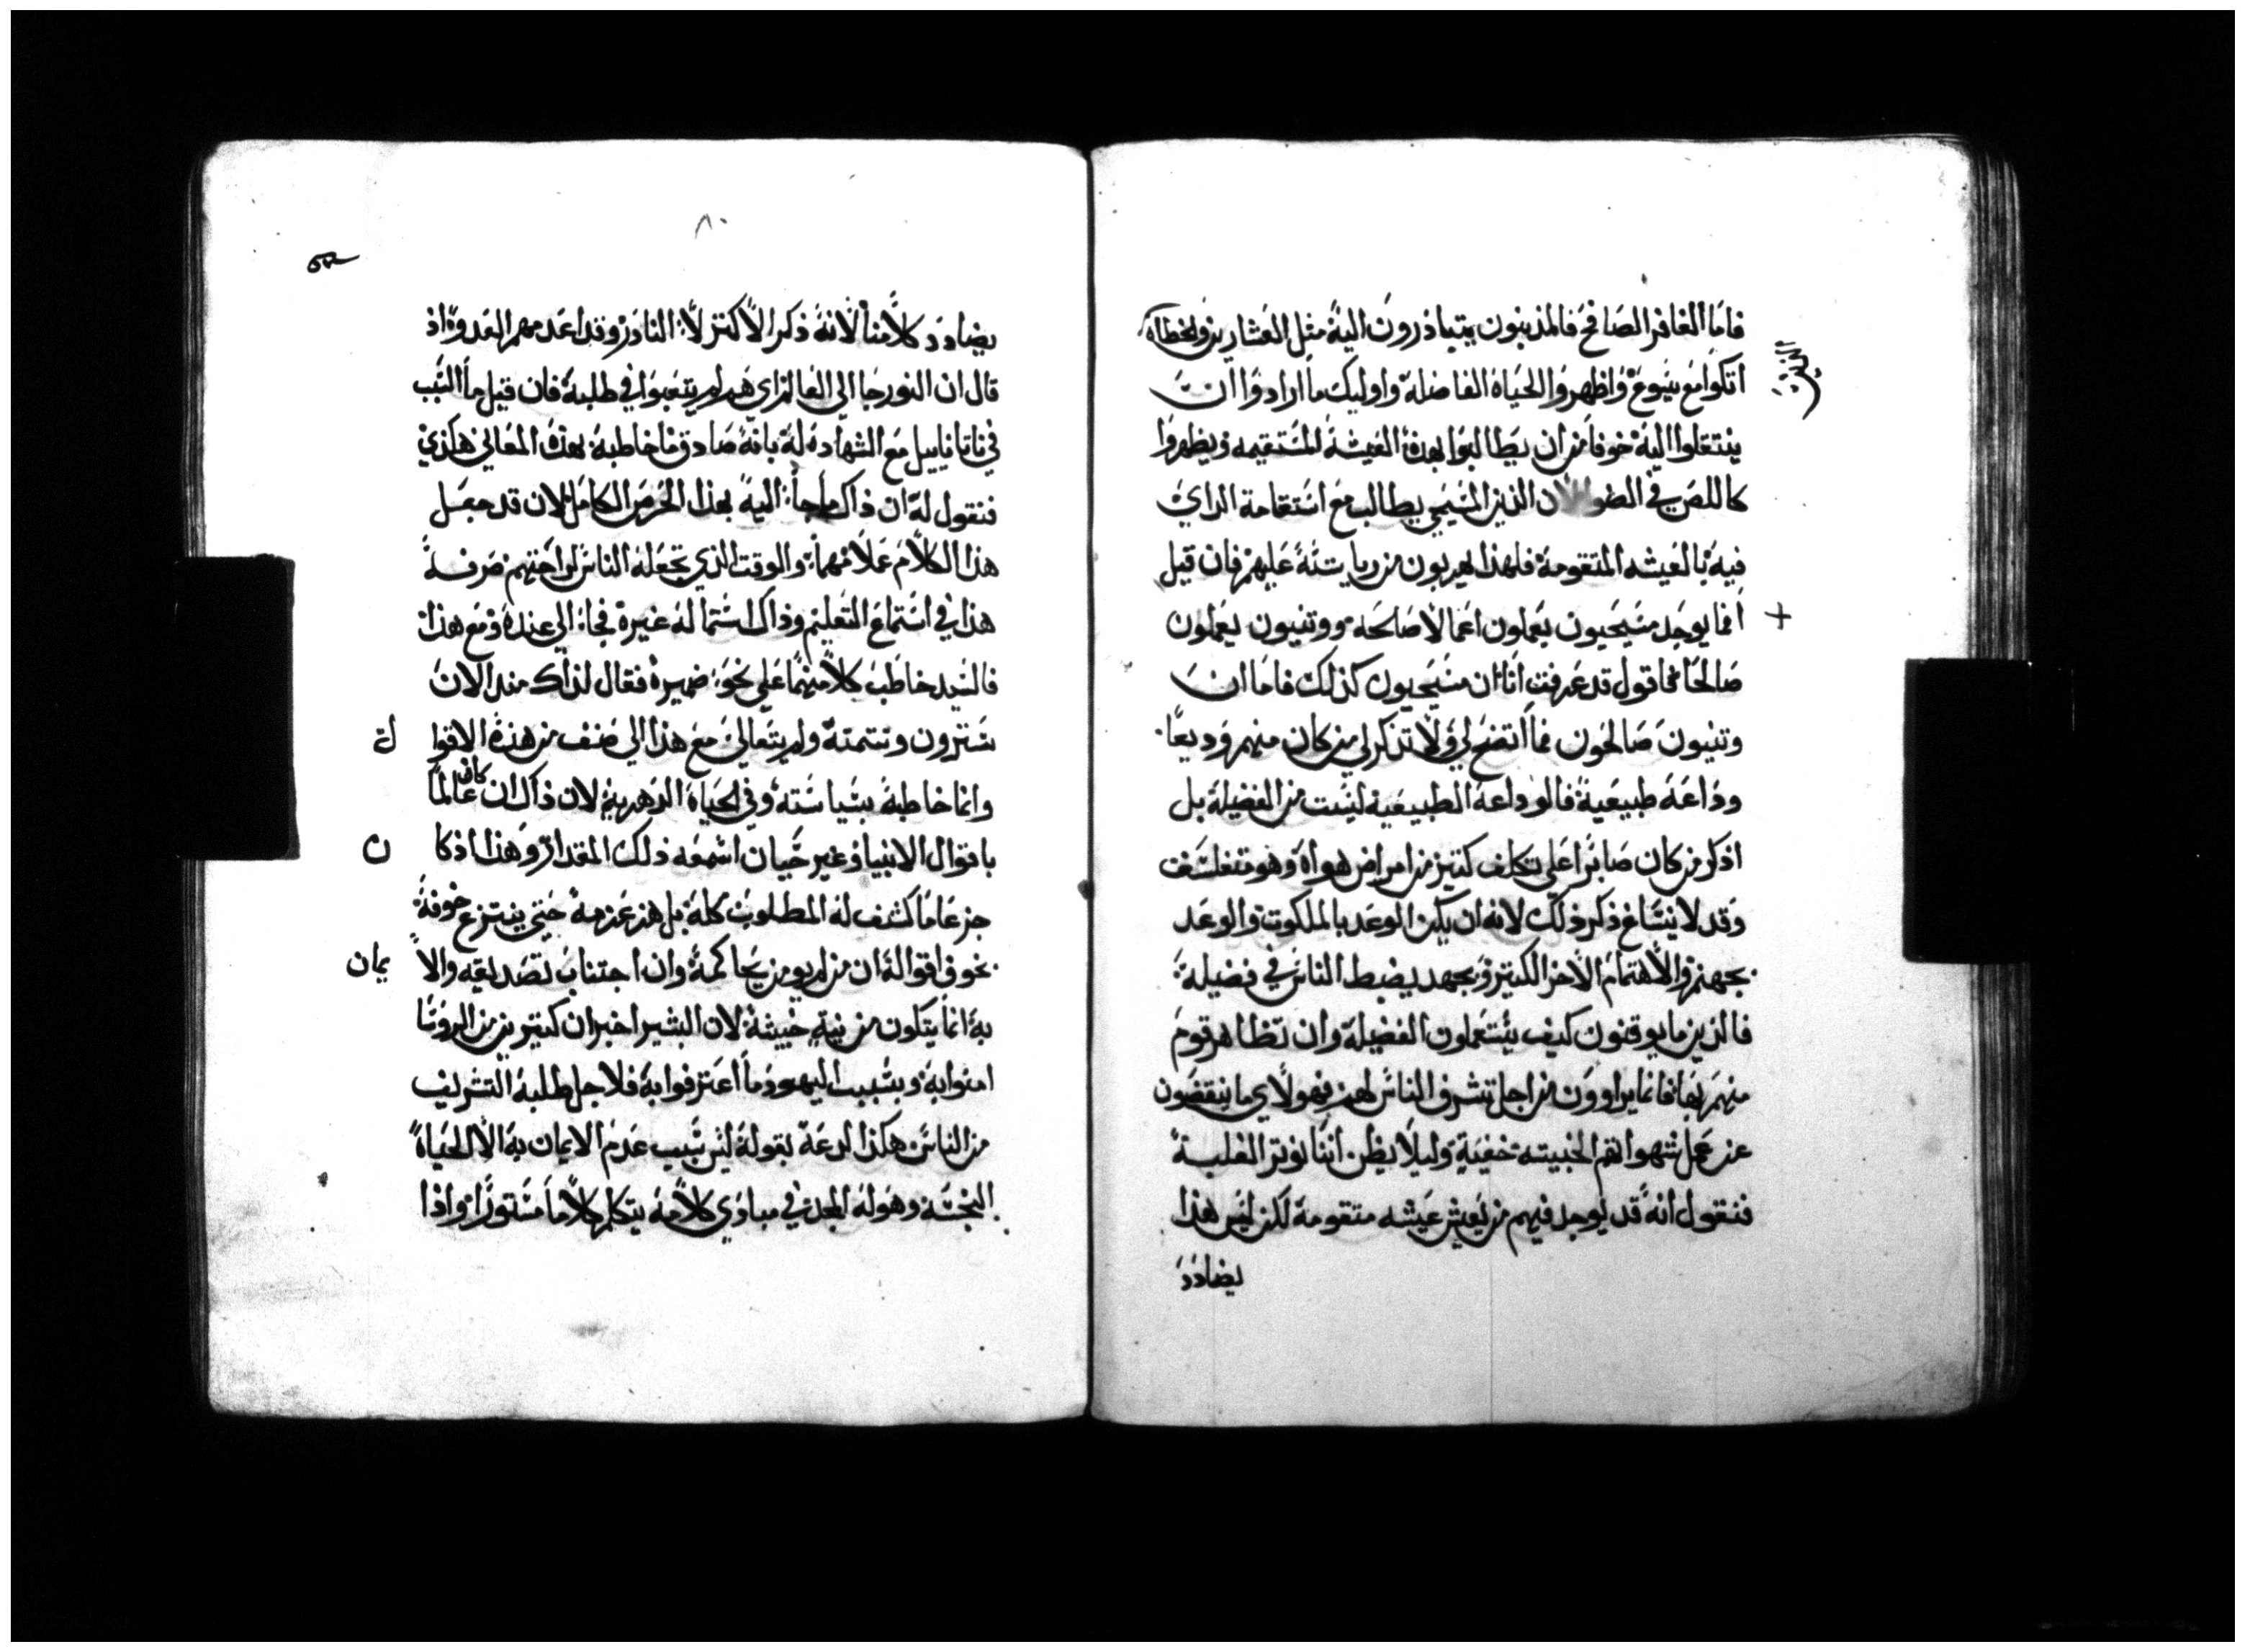 فاما الغافر الصافح فالمذنبون يتبادرون اليه مثل العشارين والخطاه
اتكوا مع يسوع واظهروا الحياه الفاضله واوليك ما ارادوا ان
ينتقلوا اليه خوفا من ان يطالبوا بهذه العيشه المستقيمه ويظهروا
كاللص في الضو لان الدين المسيحي يطالب مع استقامة الراي
فيه بالعيشه المتقومه فلهذا يهربون من رياسته عليهم فان قيل
افما يوجد مسيحيون يعملون اعمالا صالحه ووتنيون يعملون
صالحا فاقول قد عرفت انا ان مسيحيون كذلك فاما ان
وتنيون صالحون فما اتضح لي ولا تذكر لي من كان منهم وديعا
وداعة طبيعية فالوداعة الطبيعية ليست من الفضيلة بل
اذكر من كان صابرا على تكلف كتير من امراض هواه وهو متفلسف
وقد لا ينساغ ذكر ذلك لانه ان يكن الوعد بالملكوت والوعد
بجهنم والاهتمام الاخر الكتير وبجهد يضبط الناس في فضيلة
فالذين ما يوقنون كيف يستعملون الفضيلة وان تظاهر قوم
منهم بها فانما يراوون من اجل تشرف الناس لهم فهولاي ما ينقضون
عن عمل شهواتهم الخبيته خفية وليلا يظن اننا نوتر الغلبة
فنقول انه قد يوجد فيهم من يعيش عيشه متقومة لكن ليس هذا
يضادد
٨٠
يضادد كلامنا لانه ذكر الاكتر لا النادر وقد اعدمهم العدوه اذ
قال ان النور جا الى العالم اي هم لم يتعبوا في طلبة فان قيل ما السبب
في ناتاناييل مع الشهاده له بانه صادق ما خاطبه بهذه المعاني هكذي
فنقول له ان ذاك ما جا اليه بهذا الحرص الكامل لان قد جعل
هذا الكلام عملا مهما والوقت الذي تجعله الناس لراحتهم صرفه
هذا في استماع التعليم وذاك استماله غيره فجا الى عنده ومع هذا
فالسيد خاطب كلا منهما على نحو ضميره فقال لذاك منذ الان
سترون وتتمته ولم يتعالى مع هذا الى صنف من هذه الاقوا ل
وانما خاطبة بسياسته وفي الحياه الدهرية لان ذاك ان كان عالما
باقوال الانبيا وغير حيان اشمعه ذلك المقدار وهذا اذ كا ن
جزعا ما كشف له المطلوب كله بل هز عزمه حتي ينتزع خوفه
بخوف اقواله ان من لم يومن يحاكمه وان اجتناب تصديقه والا يمان
به انما يتكون من نية خبيثة لان البشير اخبر ان كتيرين من الروسا
امنوا به وبسبب اليهود ما اعترفوا به فلاجل طلبه التشريف
من الناس هكذا لدعه بقوله ليس سبب عدم الايمان به الا الحياه
النجسه وهو له المجد في مبادي كلامه يتكلم كلاما مستورا واذا